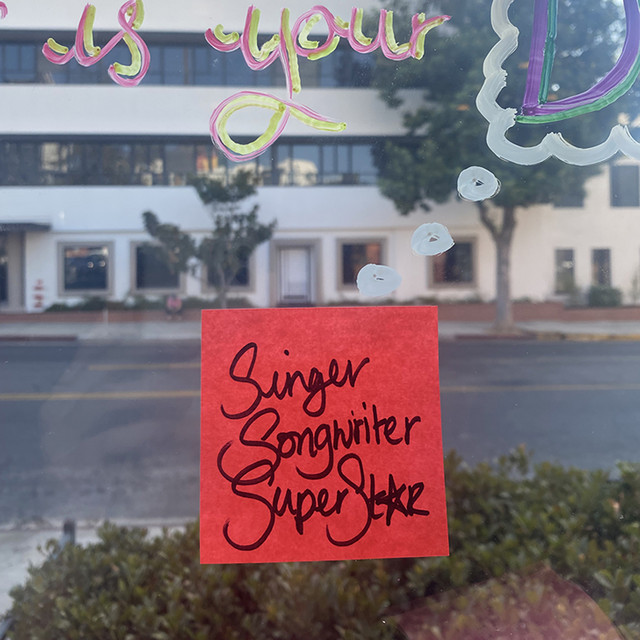 is your D
Singer
Songwriter
SuperStar